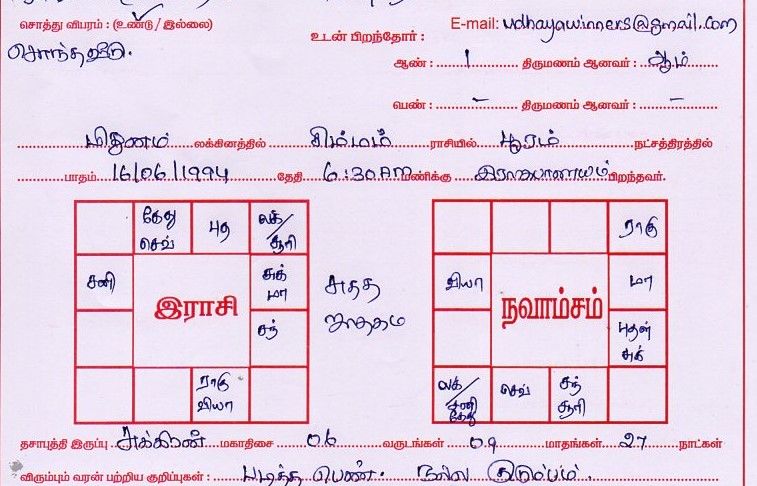 சொத்து விபரம் : (உண்டு / இல்லை)
E-mail: udhayawinners@gmail.com
சொந்தவீடு.
உடன் பிறந்தோர் :
ஆண் : 1 திருமணம் ஆனவர் : ஆம்
பெண் : – திருமணம் ஆனவர் : –
மிதுனம் லக்கினத்தில் சிம்மம் ராசியில் பூரம் நட்சத்திரத்தில்
பாதம் 16/06/1994 தேதி 6:30AM மணிக்கு இராசிபாளையம் பிறந்தவர்.
கேது செவ்
புத
லக்/ சூரி
சனி
சுக் மா
சந்
ராகு வியா
இராசி
சுத்த ஜாதகம்
ராகு
வியா
மா
புதன் சுக்
லக்/ சனி கேது
செவ்
சந் சூரி
நவாம்சம்
தசாபுத்தி இருப்பு சுக்கிரன் மகாதிசை 06 வருடங்கள் 09 மாதங்கள் 27 நாட்கள்
விரும்பும் வரன் பற்றிய குறிப்புகள் : படித்த பெண். நல்ல குடும்பம்.